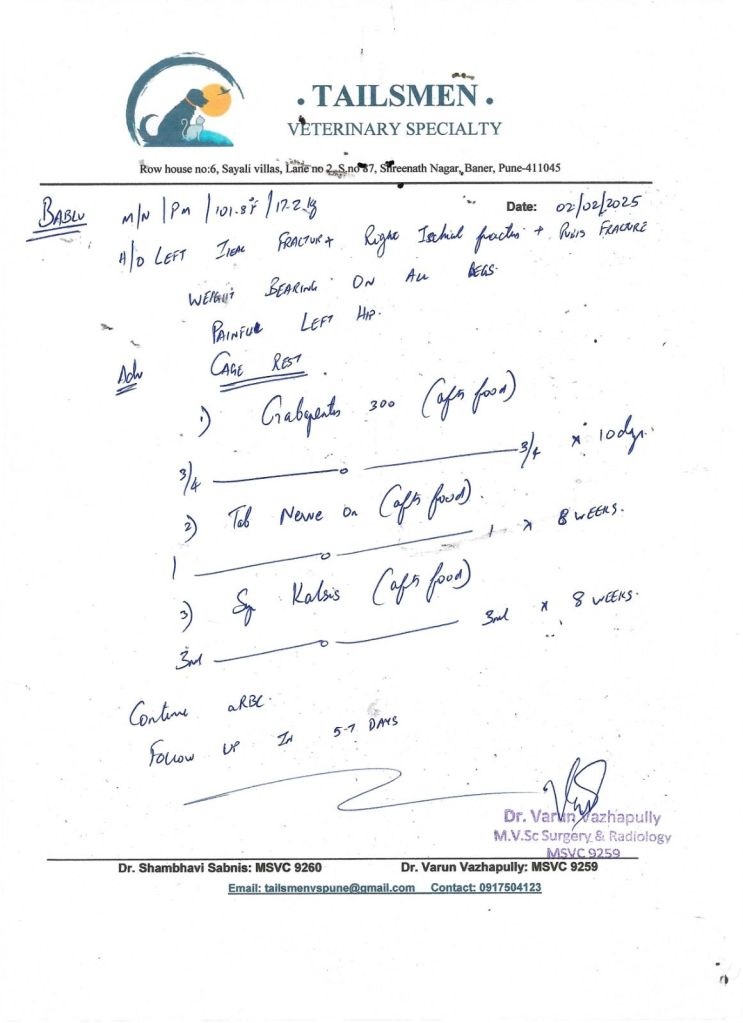 • TAILSMEN •
VETERINARY SPECIALTY
Row house no:6, Sayali villas, Lane no 2, S.no 87, Shreenath Nagar, Baner, Pune-411045
BABLU M/N | PM | 101.8°F | 17.2 kg
Date: 02/02/2025
H/O LEFT ILIAL FRACTURE + Right Ischial fracture + PUBIS FRACTURE
WEIGHT BEARING ON ALL LEGS.
PAINFUL LEFT HIP.
Adv CAGE REST.
1) Gabapentin 300 (after food)
3/4 — o — 3/4 x 10 days.
2) Tab Nerve On (after food).
1 — o — 1 x 8 WEEKS.
3) Syp Kalsis (after food)
3ml — o — 3ml x 8 WEEKS.
Continue aRBC.
FOLLOW UP IN 5-7 DAYS
Dr. Varun Vazhapully
M.V.Sc Surgery & Radiology
MSVC 9259
Dr. Shambhavi Sabnis: MSVC 9260 Dr. Varun Vazhapully: MSVC 9259
Email: tailsmenvspune@gmail.com Contact: 0917504123